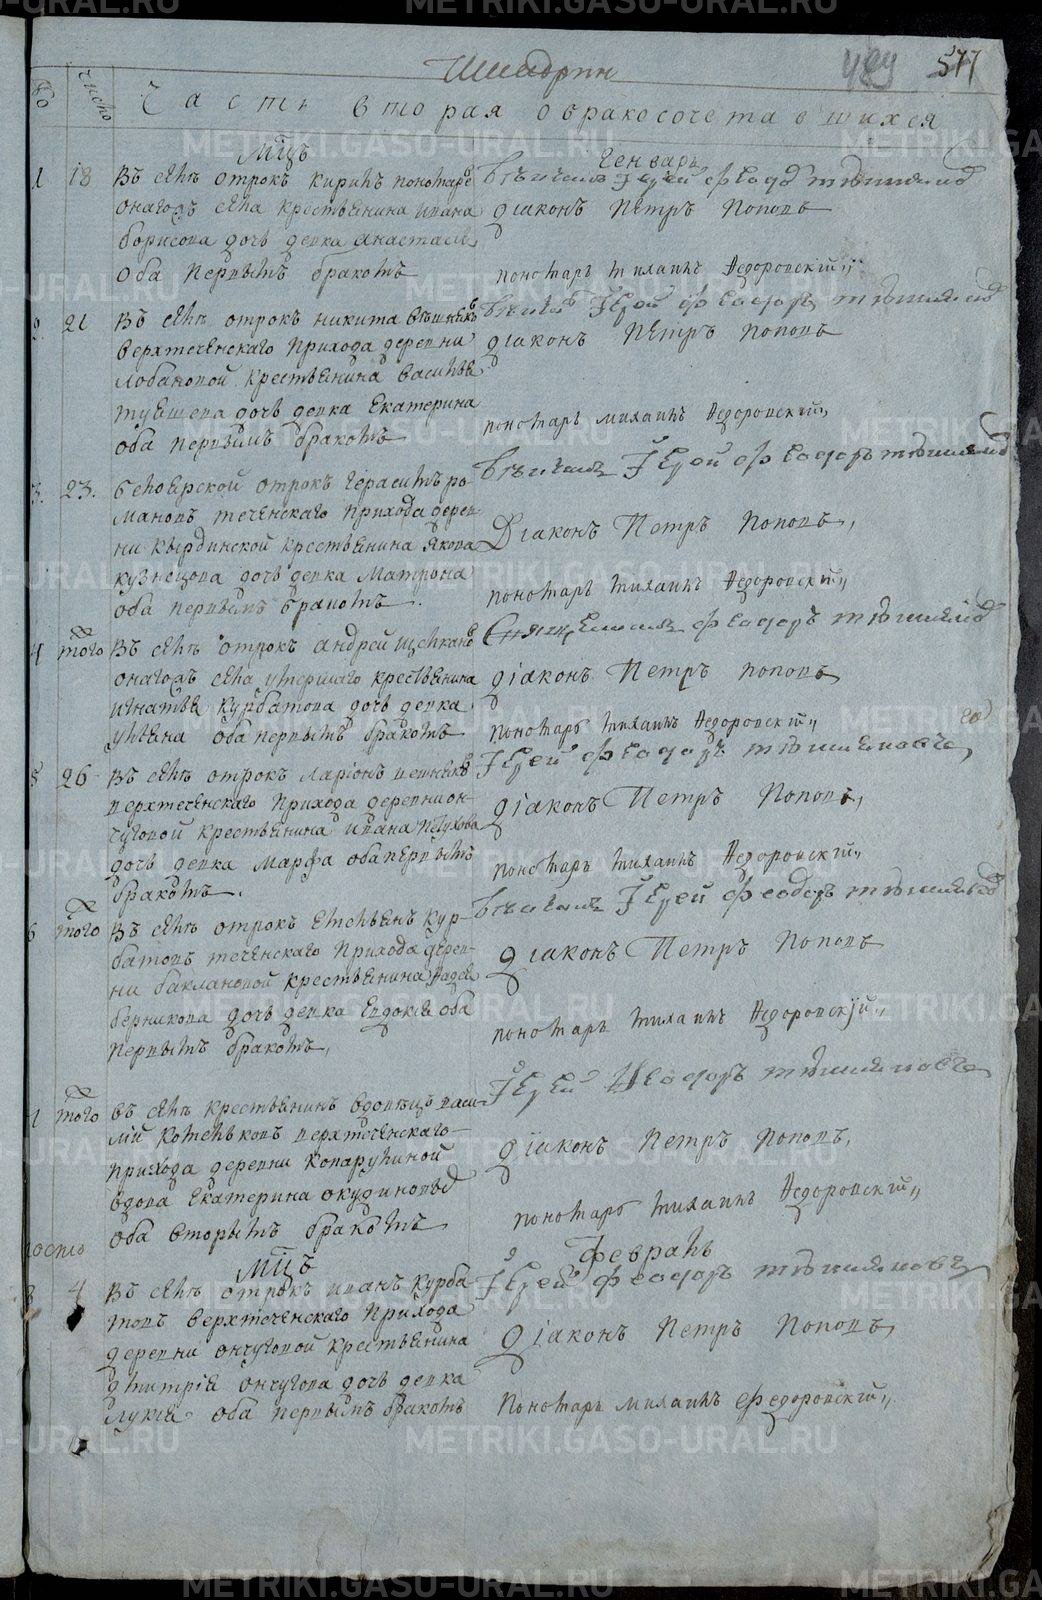 577
Часть вторая о бракосочетавшихся
Мцъ Генварь
1 18 Въ селѣ отрокъ Кирилъ Пономаре
онагожъ села крестьянина Ивана
Борисова дочь девка Анастасья
оба первымъ бракомъ
Iерей Феодор
Дiаконъ Петръ Поповъ
Пономарь Михаилъ Федоровскiй
2. 21 Въ селѣ отрокъ Никита
Верхтеченскаго прихода деревни
Лобановой крестьянина Василья
дочь девка Екатерина
оба первымъ бракомъ
Iерей Феодоръ
Дiаконъ Петръ Поповъ
Пономарь Михаилъ Федоровскiй
3. 23. Белоярской отрокъ Герасимъ Ро
мановъ теченскаго прихода дерев
ни Кырдинской крестьянина Якова
Кузнецова дочь девка Матрона
оба первымъ бракомъ.
Iерей Феодоръ
Дiаконъ Петръ Поповъ,
Пономарь Михаилъ Федоровскiй
4 того Въ селѣ отрокъ Андрей
онагожъ села умершаго крестьянина
Игнатья Курбатова дочь девка
Ульяна оба первымъ бракомъ
Феодоръ
Дiаконъ Петръ Поповъ
Пономарь Михаилъ Федоровскiй
5 26 Въ селѣ отрокъ Ларiонъ
Верхтеченскаго прихода деревни Он-
чуговой крестьянина Ивана Петухова
дочь девка Марфа оба первымъ
бракомъ.
Iерей Феодоръ
Дiаконъ Петръ Поповъ,
Пономарь Михаилъ Федоровскiй
6 того Въ селѣ отрокъ Емельянъ Кур-
батовъ теченскаго прихода дерев-
ни Баклановой крестьянина
Берникова дочь девка Евдокiя оба
первымъ бракомъ,
Iерей Феодоръ
Дiаконъ Петръ Поповъ
Пономарь Михаилъ Федоровскiй
7 того Въ селѣ крестьянинъ вдовецъ Васи-
лiй Котельковъ Верхтеченскаго
прихода деревни Копарулиной
вдова Екатерина Окудинова
оба вторымъ бракомъ
Iерей Феодоръ
Дiаконъ Петръ Поповъ,
Пономарь Михаилъ Федоровскiй
Мцъ Февраль
8 4 Въ селѣ отрокъ Иванъ Курба
товъ Верхтеченскаго прихода
деревни Ончуговой крестьянина
Дмитрiя Ончугова дочь девка
Лукiя оба первымъ бракомъ
Iерей Феодоръ
Дiаконъ Петръ Поповъ
Пономарь Михаилъ Федоровскiй
METRIKI.GASO-URAL.RU